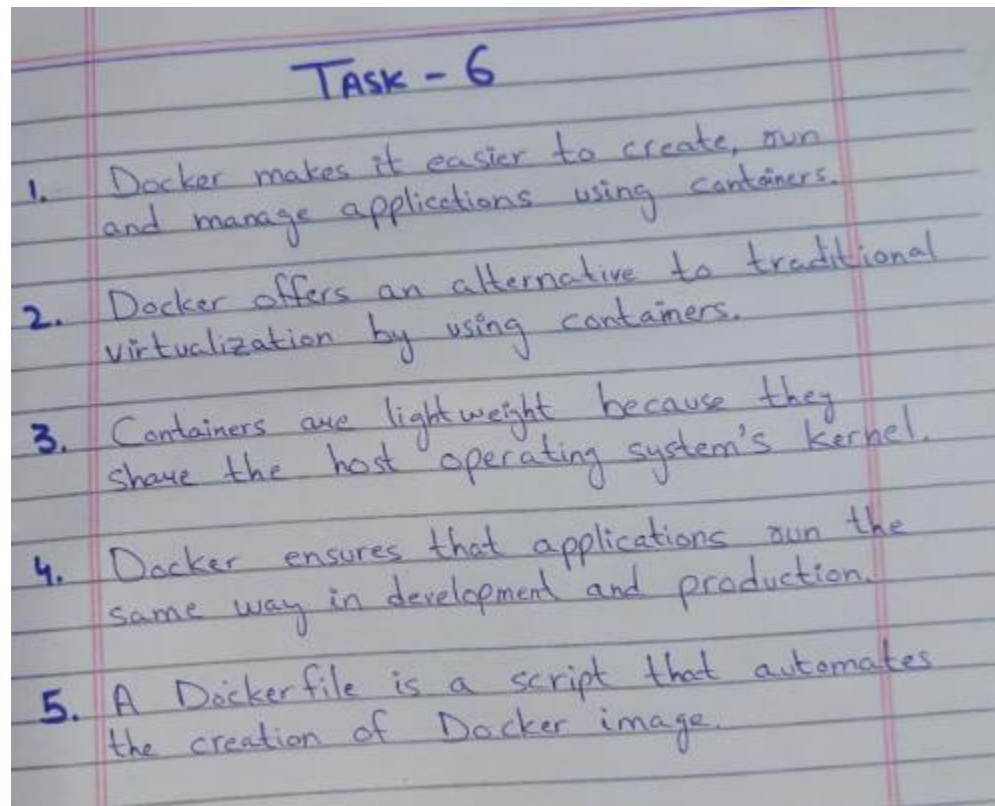 TASK - 6
1. Docker makes it easier to create, run
and manage applications using containers.
2. Docker offers an alternative to traditional
virtualization by using containers.
3. Containers are lightweight because they
share the host operating system's kernel.
4. Docker ensures that applications run the
same way in development and production.
5. A Dockerfile is a script that automates
the creation of Docker image.